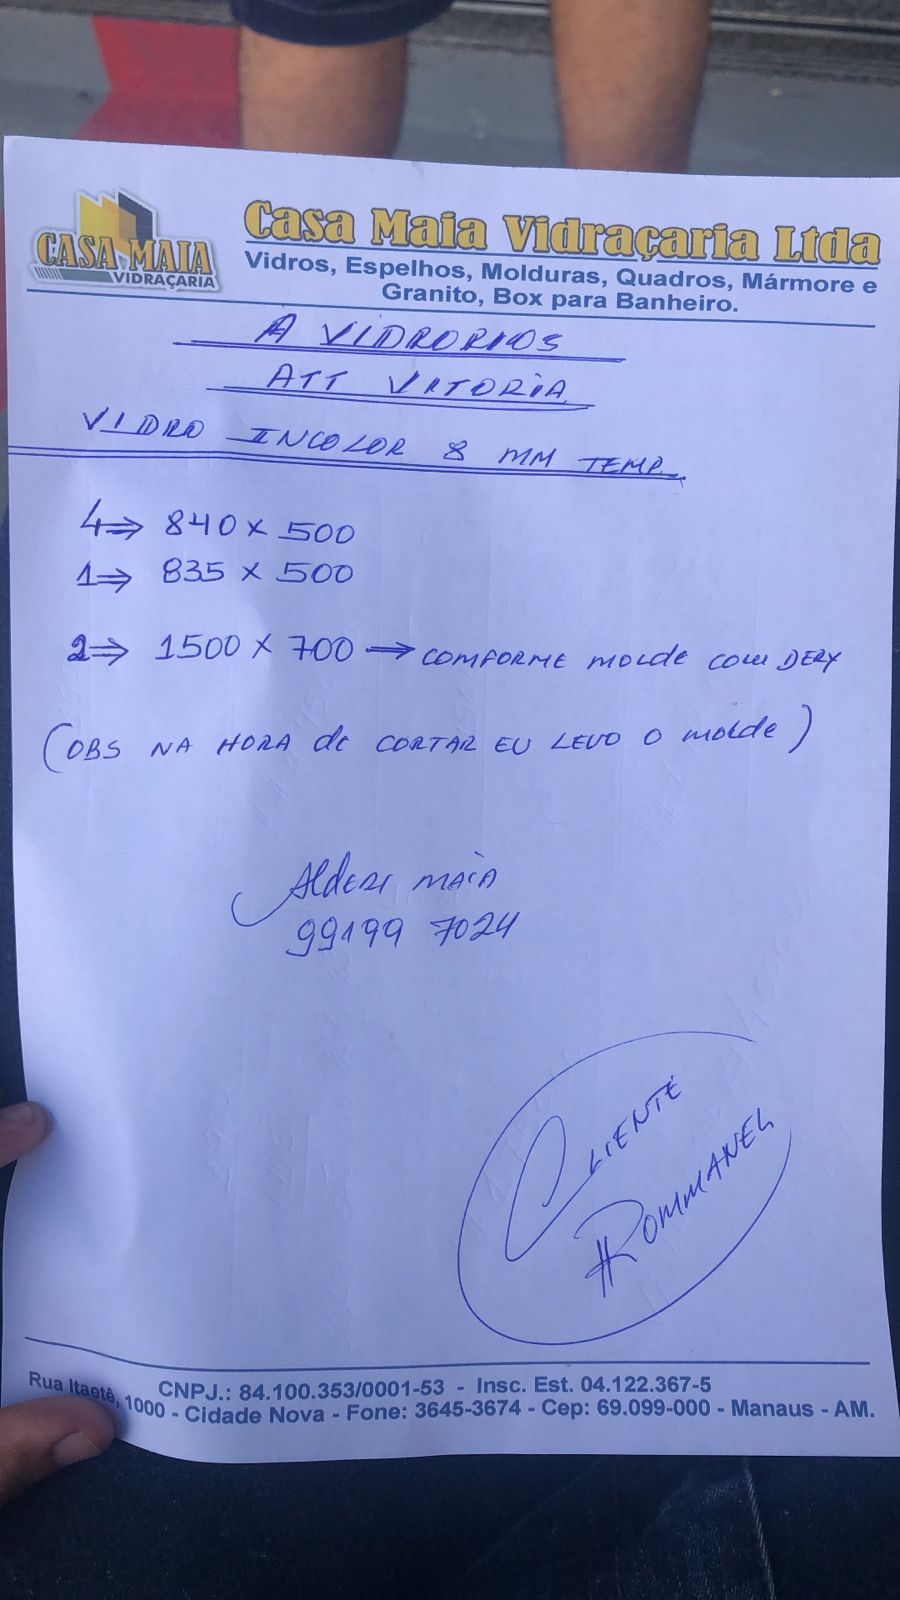 CASA MAIA
VIDRAÇARIA
Casa Maia Vidraçaria Ltda
Vidros, Espelhos, Molduras, Quadros, Mármore e
Granito, Box para Banheiro.
A VIDRORIOS
ATT VITORIA
VIDRO INCOLOR 8 MM TEMP.
4⇒ 840 x 500
1⇒ 835 x 500
2⇒ 1500 x 700 → COMFORME MOLDE COM DERY
(OBS NA HORA de CORTAR EU LEVO O MOLDE)
Alderi MAIA
99199 7024
CLIENTE
ROMMANEL
CNPJ.: 84.100.353/0001-53 - Insc. Est. 04.122.367-5
Rua Itaetê, 1000 - Cidade Nova - Fone: 3645-3674 - Cep: 69.099-000 - Manaus - AM.